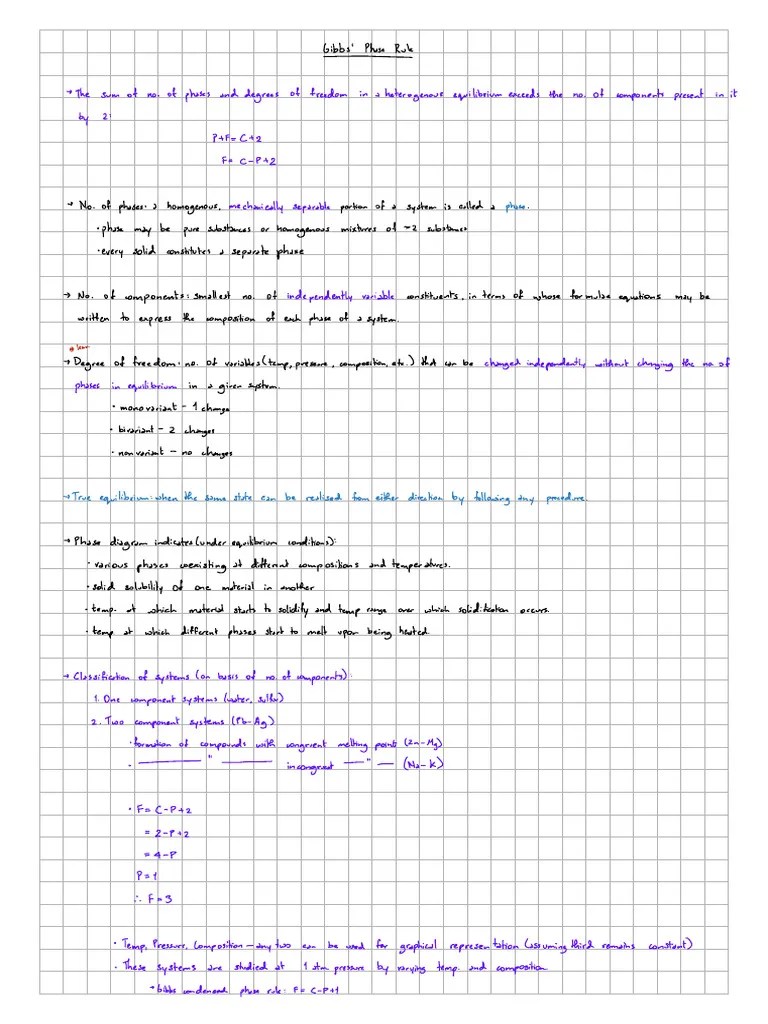 Gibbs' Phase Rule
→ The sum of no. of phases and degrees of freedom in a heterogenous equilibrium exceeds the no. of components present in it
by 2:
P+F= C+2
F= C-P+2
→ No. of phases: a homogenous, mechanically separable portion of a system is called a phase.
• phase may be pure substances or homogenous mixtures of ~2 substances
• every solid constitutes a separate phase
→ No. of components: smallest no. of independently variable constituents, in terms of whose formulae equations may be
written to express the composition of each phase of a system.
→ Degree of freedom: no. of variables (temp, pressure, composition, etc.) that can be changed independently without changing the no. of
phases in equilibrium in a given system.
• monovariant - 1 change
• bivariant - 2 changes
• nonvariant - no changes
→ True equilibrium: when the same state can be realised from either direction by following any procedure.
→ Phase diagram indicates (under equilibrium conditions):
• various phases coexisting at different compositions and temperatures.
• solid solubility of one material in another
• temp. at which material starts to solidify and temp range over which solidification occurs.
• temp at which different phases start to melt upon being heated.
→ Classification of systems (on basis of no. of components):
1. One component systems (water, sulfur)
2. Two component systems (Pb-Ag)
• formation of compounds with congruent melting point (Zn-Mg)
• ——— " ——— incongruent — " — (Na-K)
• F= C-P+2
= 2-P+2
= 4-P
P=1
∴ F=3
• Temp, Pressure, Composition - any two can be used for graphical representation (assuming third remains constant)
• These systems are studied at 1 atm pressure by varying temp. and composition
→ Gibbs condensed phase rule: F= C-P+1